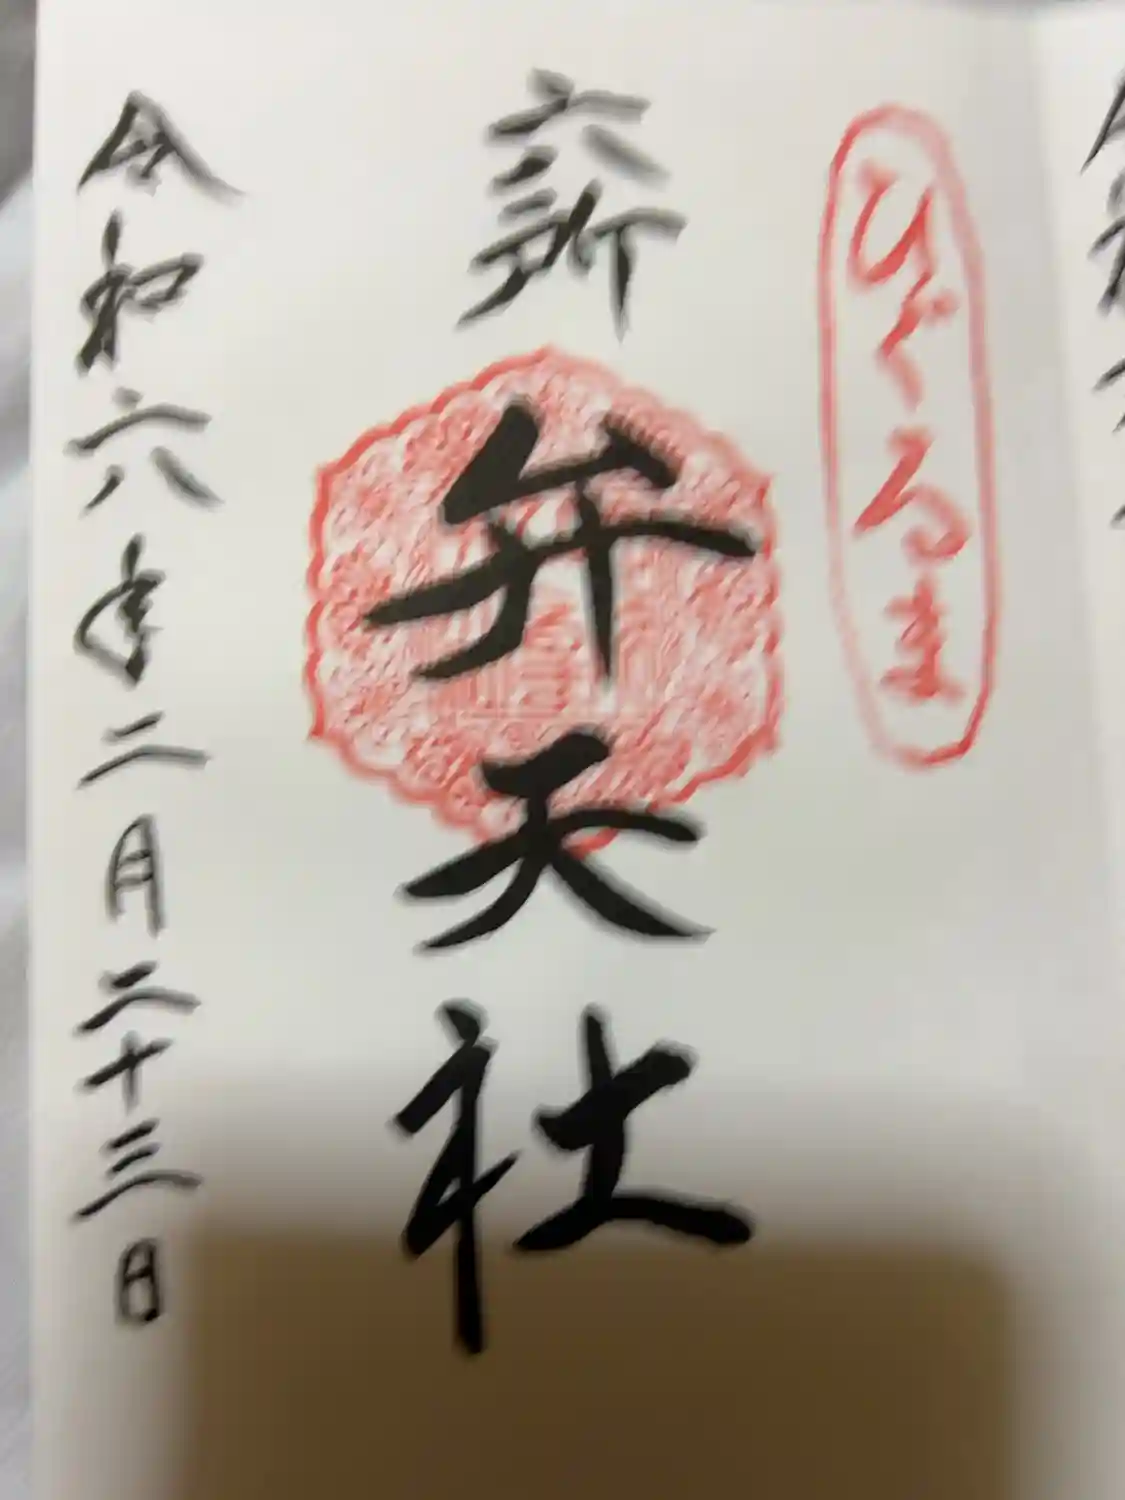 ひぐるま
六所
弁天社
令和六年二月二十三日